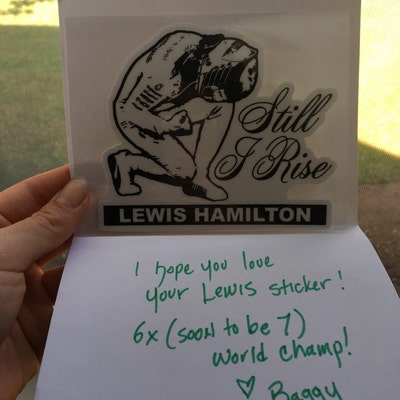 Still
I Rise
LEWIS HAMILTON
I hope you love
your Lewis sticker!
6x (soon to be 7)
world champ!
♡ Baggy